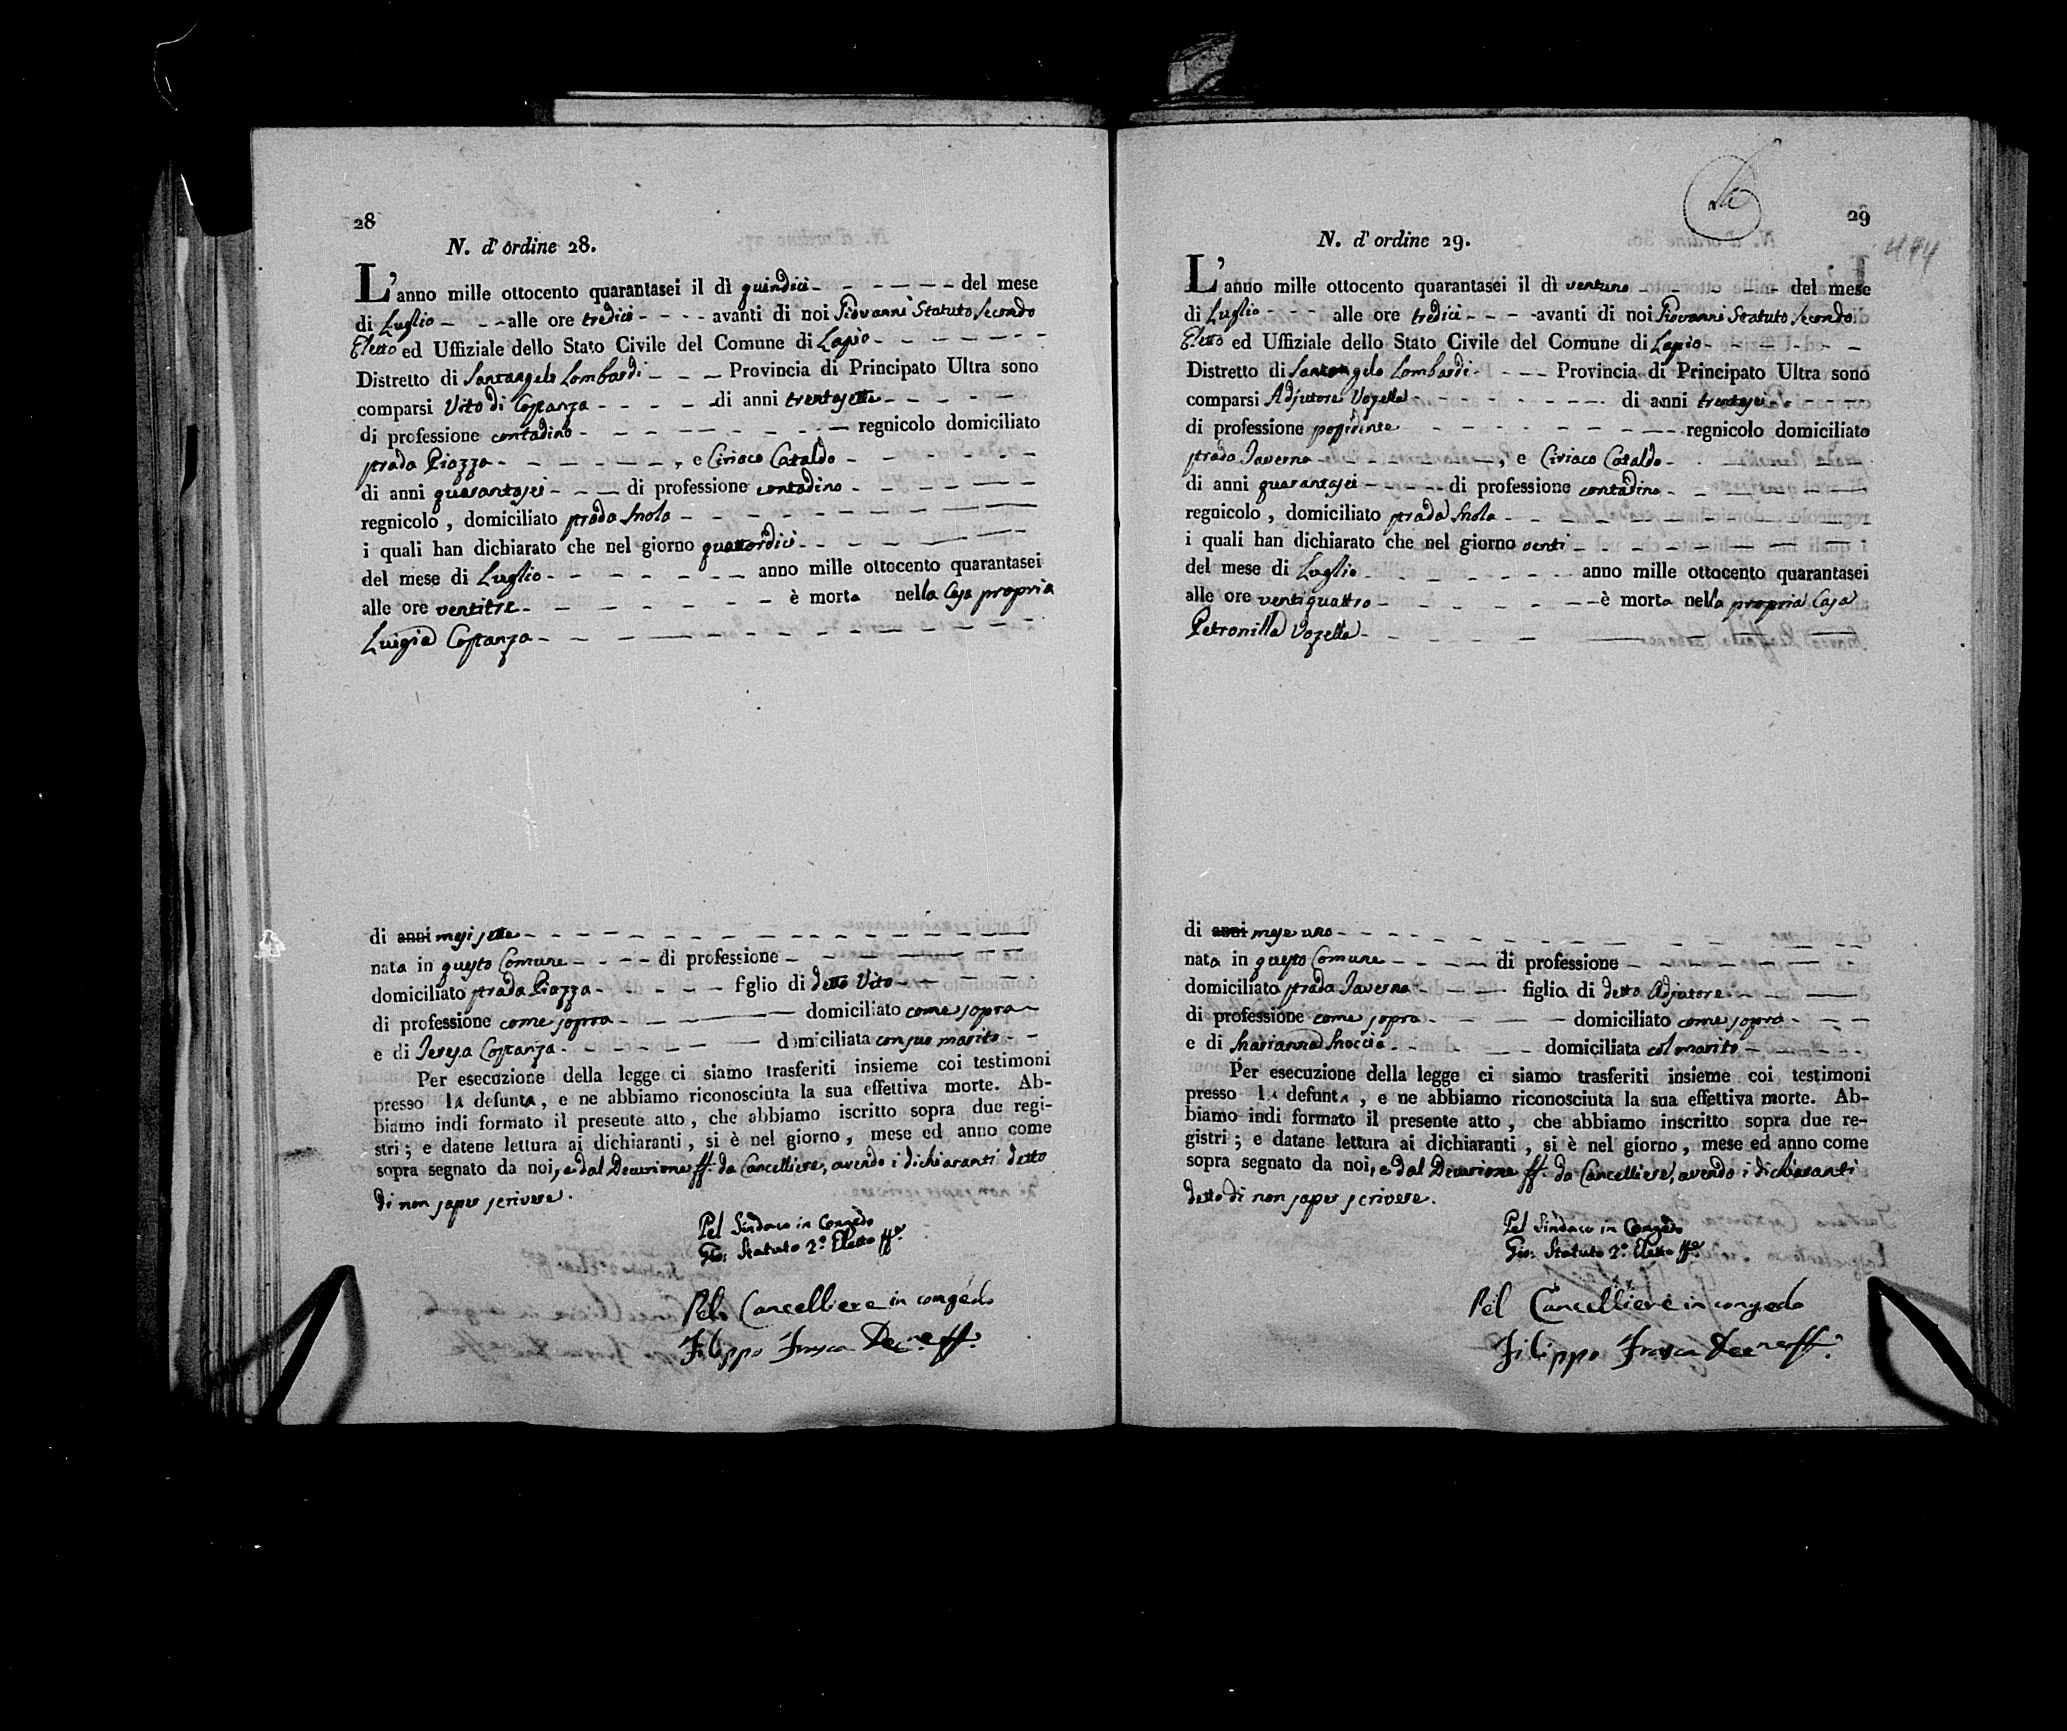 28
N. d'ordine 28.
L'anno mille ottocento quarantasei il dì quindici - - - - - - del mese
di Luglio - - - alle ore tredici - - - - avanti di noi Giovanni Statuto, Secondo
Eletto ed Uffiziale dello Stato Civile del Comune di Lapio - - - - - - -
Distretto di Santangelo Lombardi - - - Provincia di Principato Ultra sono
comparsi Vito di Costanza - - - - - di anni trentasette - - - - -
di professione contadino - - - - - - - - - regnicolo domiciliato
strada Piazza - - - - - - , e Ciriaco Cataldo - - - - - - -
di anni quarantasei - - - di professione contadino - - - - - - -
regnicolo , domiciliato strada Mola - - - - - - - - - - -
i quali han dichiarato che nel giorno quattordici - - - - - - -
del mese di Luglio - - - - - - - anno mille ottocento quarantasei
alle ore ventitre - - - - - - - è morta nella Casa propria
Luigia Costanza - - - - - - - - - - - - - -
di anni mesi sette - - - - - - - - - - - - - - - - -
nata in questo Comune - - - - di professione - - - - - - -
domiciliato strada Piazza - - - - - figlio di detto Vito - - - - -
di professione come sopra - - - - - domiciliato come sopra -
e di Teresa Costanza - - - - - - domiciliata con suo marito - -
Per esecuzione della legge ci siamo trasferiti insieme coi testimoni
presso la defunta, e ne abbiamo riconosciuta la sua effettiva morte. Ab-
biamo indi formato il presente atto, che abbiamo iscritto sopra due regi-
stri; e datene lettura ai dichiaranti, si è nel giorno, mese ed anno come
sopra segnato da noi, e dal Decurione ff. da Cancelliere, avendo i dichiaranti detto
di non saper scrivere.
Pel Sindaco in Congedo
Gio: Statuto 2.° Eletto ff.
Pel Cancelliere in congedo
Filippo Frasca Dec.ne ff.
29
N. d'ordine 29.
L'anno mille ottocento quarantasei il dì ventuno - - - - - del mese
di Luglio - - - alle ore tredici - - - - avanti di noi Giovanni Statuto, Secondo
Eletto ed Uffiziale dello Stato Civile del Comune di Lapio - - - - - -
Distretto di Santangelo Lombardi - - - - Provincia di Principato Ultra sono
comparsi Adjutore Vozella - - - - - - - - - di anni trentasei - - - - -
di professione possidente - - - - - - - - - regnicolo domiciliato
strada Taverna - - - - - - - , e Ciriaco Cataldo - - - - - -
di anni quarantasei - - - - - di professione contadino - - - - - -
regnicolo , domiciliato strada Mola - - - - - - - - - -
i quali han dichiarato che nel giorno venti - - - - - - - - -
del mese di Luglio - - - - - - - anno mille ottocento quarantasei
alle ore ventiquattro - - - - - - - è morta nella propria Casa
Petronilla Vozella - - - - - - - - - -
di anni mese uno - - - - - - - - - - - - - - -
nata in questo Comune - - - - di professione - - - - - - -
domiciliato strada Taverna - - - - figlia di detto Adjutore - - - -
di professione come sopra - - - - - domiciliato come sopra - - -
e di Marianna Moccia - - - - - - domiciliata col marito - - - - -
Per esecuzione della legge ci siamo trasferiti insieme coi testimoni
presso la defunta, e ne abbiamo riconosciuta la sua effettiva morte. Ab-
biamo indi formato il presente atto, che abbiamo inscritto sopra due re-
gistri; e datane lettura ai dichiaranti, si è nel giorno, mese ed anno come
sopra segnato da noi, e dal Decurione ff. da Cancelliere, avendo i dichiaranti
detto di non saper scrivere.
Pel Sindaco in Congedo
Gio: Statuto 2.° Eletto ff.
Pel Cancelliere in congedo
Filippo Frasca Dec.ne ff.